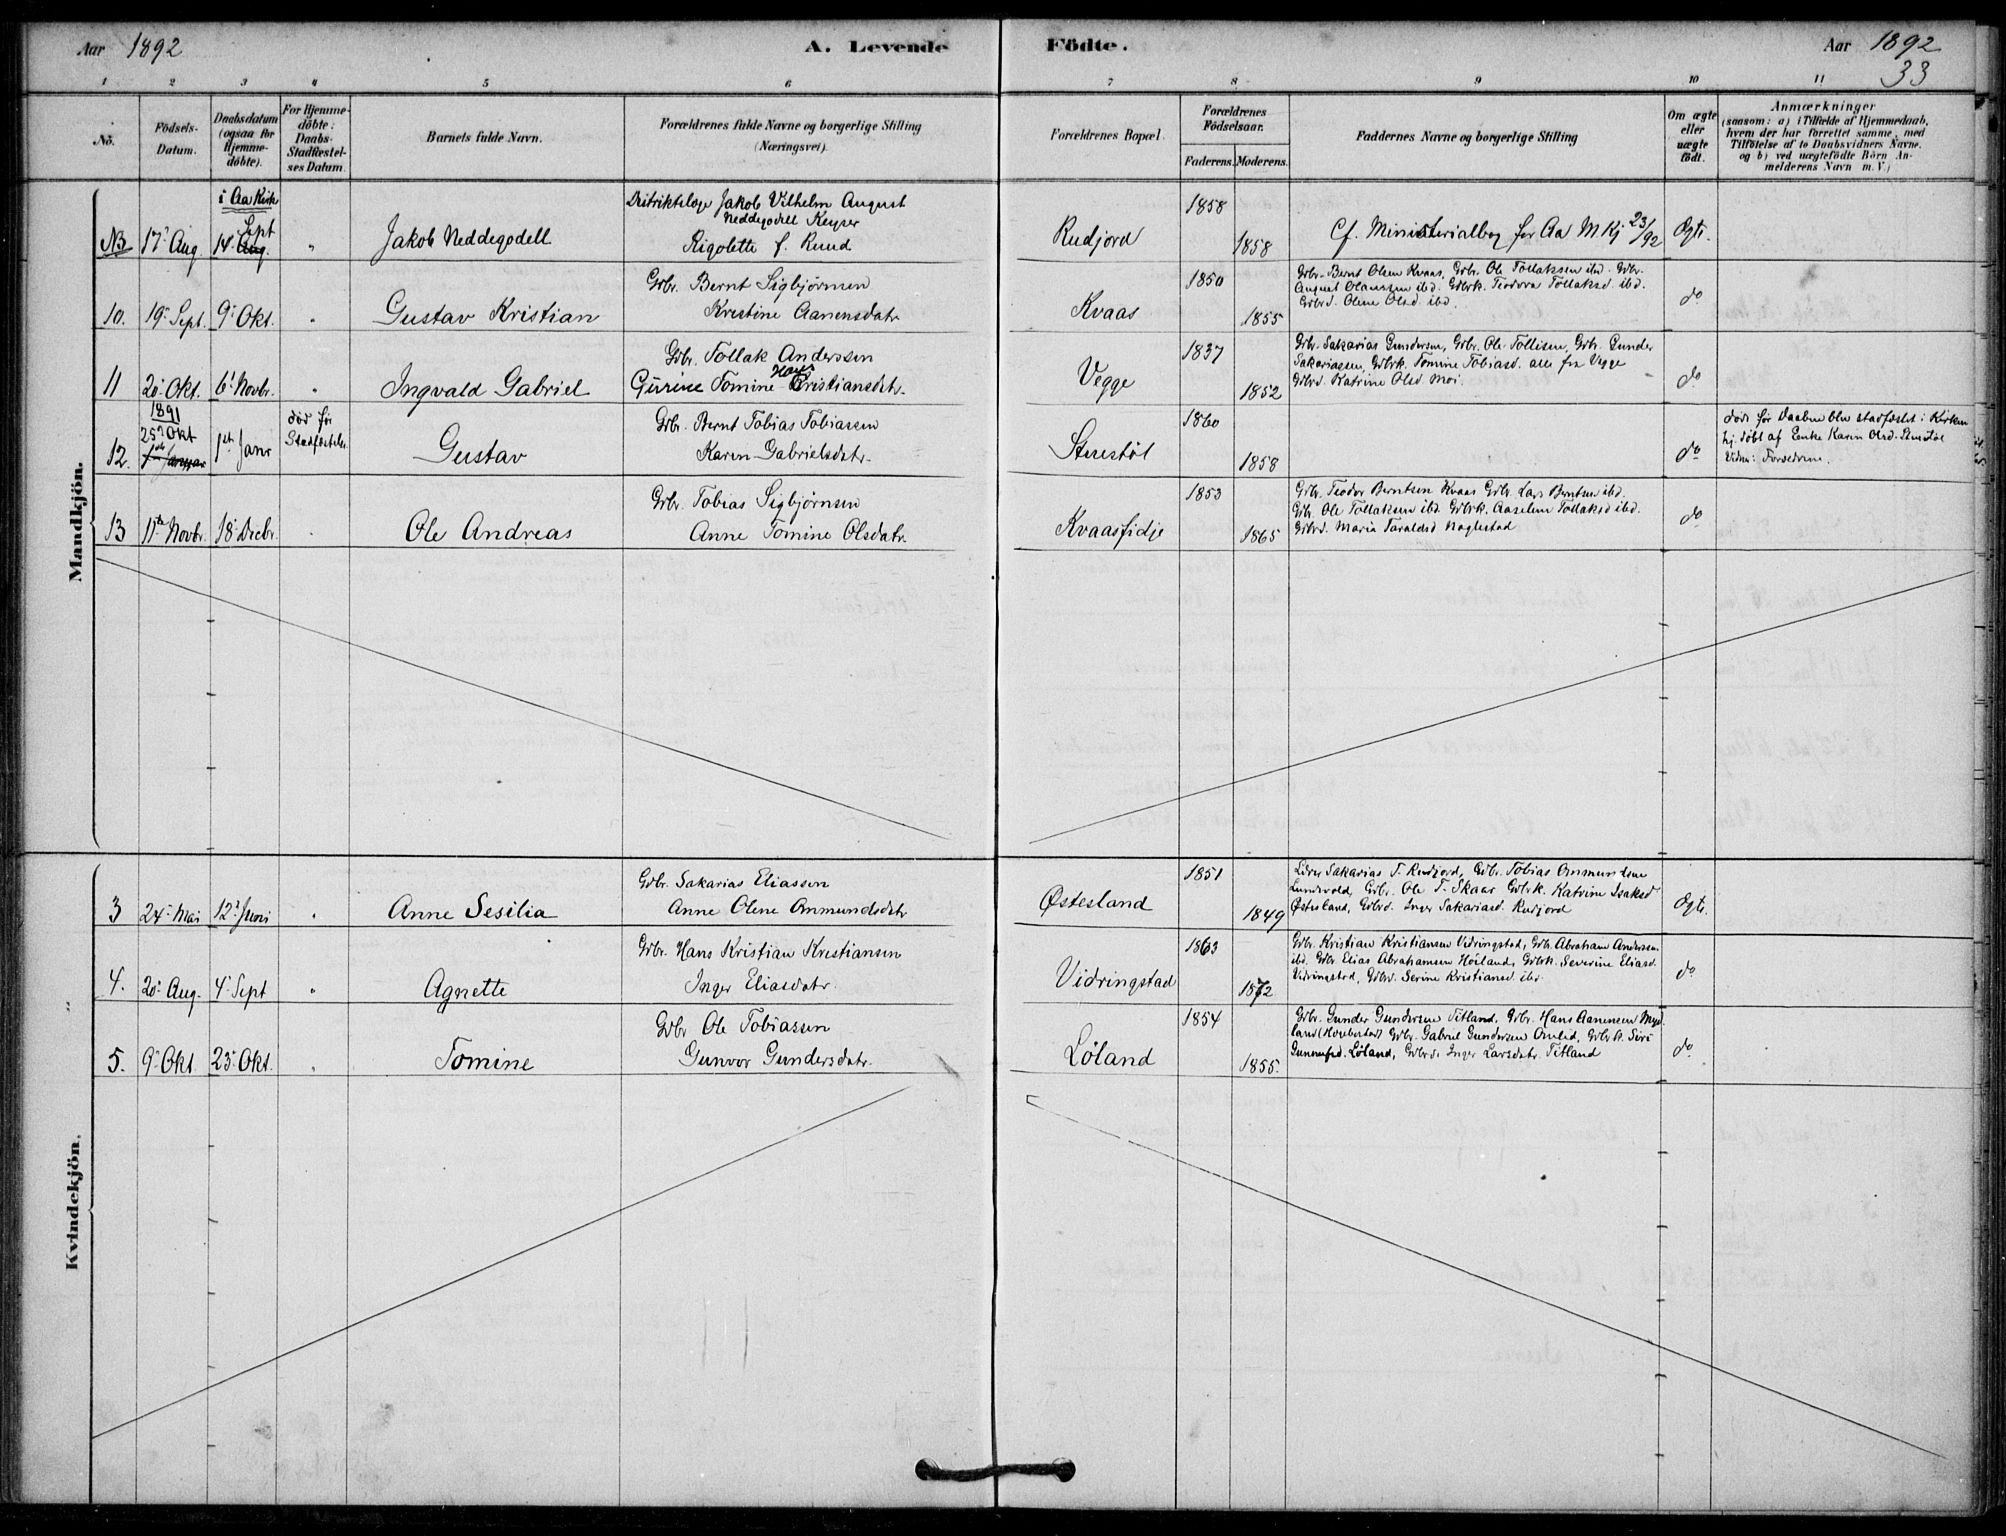 Aar 1892
A. Levende
Födte.
Aar 1892
33
1 2 3 4 5 6 7 8 9 10 11
No.
Födsels-
Datum.
Daabsdatum
(ogsaa för
Hjemme-
döbte).
For Hjemme-
döbte:
Daabs-
Stadfæstel-
ses Datum.
Barnets fulde Navn.
Forældrenes fulde Navne og borgerlige Stilling
(Næringsvei).
Forældrenes Bopæl.
Forældrenes
Födselsaar.
Faderens. Moderens.
Faddernes Navne og borgerlige Stilling
Om ægte
eller
uægte
födt.
Anmærkninger
(saasom: a) i Tilfælde af Hjemmedaab,
hvem der har forrettet samme, med
Tilföielse af to Daabsvidners Navne.
og b) ved uægtefödte Börn An-
melderens Navn m. V.)
Mandkjön.
i Aa Kirk
NB 17' Aug. 14' Aug. Sept " Jakob Neddegodell
Distriktslæge Jakob Vilhelm August
Neddegodell Keyser
Rigolette f. Knud
Rudjord
1858
1858
Cf. Ministerialbog for Aa M Kj 23/92
Ægte.
10. 19' Sept. 9' Okt. " Gustav Kristian
Gbr. Bernt Sigbjörnsen
Kristine Aanensdatr
Kvaas
1850
1855
Gbr. Bernt Olsen Kvaas, Gbr. Ole Tollaksen ibd. Gbr.
August Olaussen ibd. Gbrk. Teodora Tollaksd. ibd.
Gbrd. Olene Olsd. ibd.
do
11 20' Okt. 6' Novbr. " Ingvald Gabriel
Gbr. Tollak Anderssen
Gurine Tomine Hans Cristiansdatr.
Vegge
1837
1852
Gbr. Sakarias Gundersen, Gbr. Ole Tollisen, Gbr. Gunder
Sakariassen, Gbrk. Tomine Tobiasd. alle fra Vegge
Gbrd. Katrine Olsd. Moi.
do
12. 1891
25' Okt
1ste Januar
1ste Janr
död för
Stadfæstelse
Gustav
Gbr. Bernt Tobias Tobiassen
Karen Gabrielsdatr.
Stenestöl
1860
1858
do
döde för Daaben blev stadfæstet i Kirken
hj. döbt af Enke Karen Olsd. Stenstöl
Vidner: Forældrene.
13 11te Novbr. 18' Decbr. " Ole Andreas
Gbr. Tobias Sigbjørnsen
Anne Tomine Olsdatr.
Kvaasfidje
1853
1865
Gbr. Teodor Berntsen Kvaas Gbr. Lars Berntsen ibd.
Gbr. Ole Tollaksen ibd. Gbrk. Aaselene Tollaksd ibd.
Gbrd. Maria Taraldsd Naglestad
do
Kvindekjön.
3 24' Mai 12' Juni " Anne Sesilia
Gbr. Sakarias Eliassen
Anne Olene Onmundsdatr
Østesland
1851
1849
Lærer Sakarias T. Rudjord, Gbr. Tobias Onmundsen
Lundevold, Gbr. Ole T. Skaar Gbrk. Katrine Isaksd
Østesland, Gbrd. Inger Sakariasd. Rudjord
Ægte.
4. 20' Aug. 4' Sept " Agnette
Gbr. Hans Kristian Kristiansen
Inger Eliasdatr.
Vidringstad
1863
1872
Gbr. Kristian Kristiansen Vidringstad, Gbr. Abraham Andersen
ibd. Gbr Elias Abrahamsen Höiland, Gbrk. Severine Eliasd.
Vidringstad, Gbrd. Serine Kristiansd. ibd
do
5. 9' Okt. 23' Okt. " Tomine
Gbr Ole Tobiassen
Gunvor Gundersdatr.
Löland
1854
1855.
Gbr. Gunder Gundersen Titland, Gbr. Hans Aanensen Myd-
land Gbr. Gabriel Gundersen Omlid, Gbrk. Siri
Gunnufsd. Löland, Gbrd. Inger Larsdatr. Titland
do